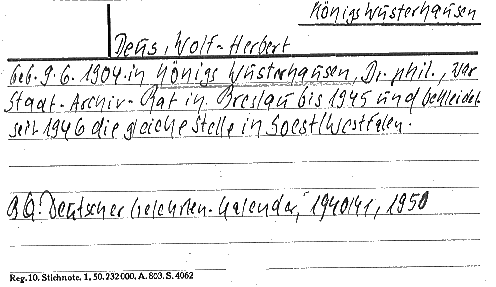 Königs Wusterhausen
Deus, Wolf-Herbert
geb. 9.6.1904 in Königs Wusterhausen, Dr. phil., war
Stadt-Archiv-Rat in Breslau bis 1945 und bekleidet
seit 1946 die gleiche Stelle in Soest/Westfalen.
BQ: Deutscher Gelehrten-Kalender, 1940/41, 1950
Reg. 10. Stichnote. 1, 50. 232 000. A. 803. S. 4062